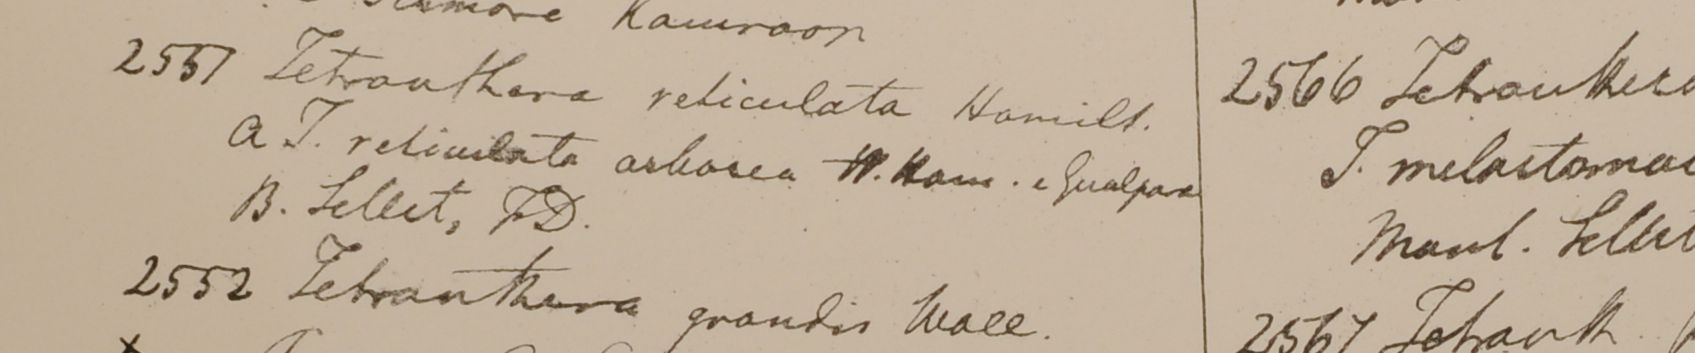 Kamroop
2551 Tetranthera reticulata Hamilt.
a T. reticulata arborea H. Ham. e Gualpara
B. Sellet, FD.
2552 Tetranthera grandis Wall.
2566 Tetranthera
T. melastomac
Moul. Sillet
2567 Tetranth